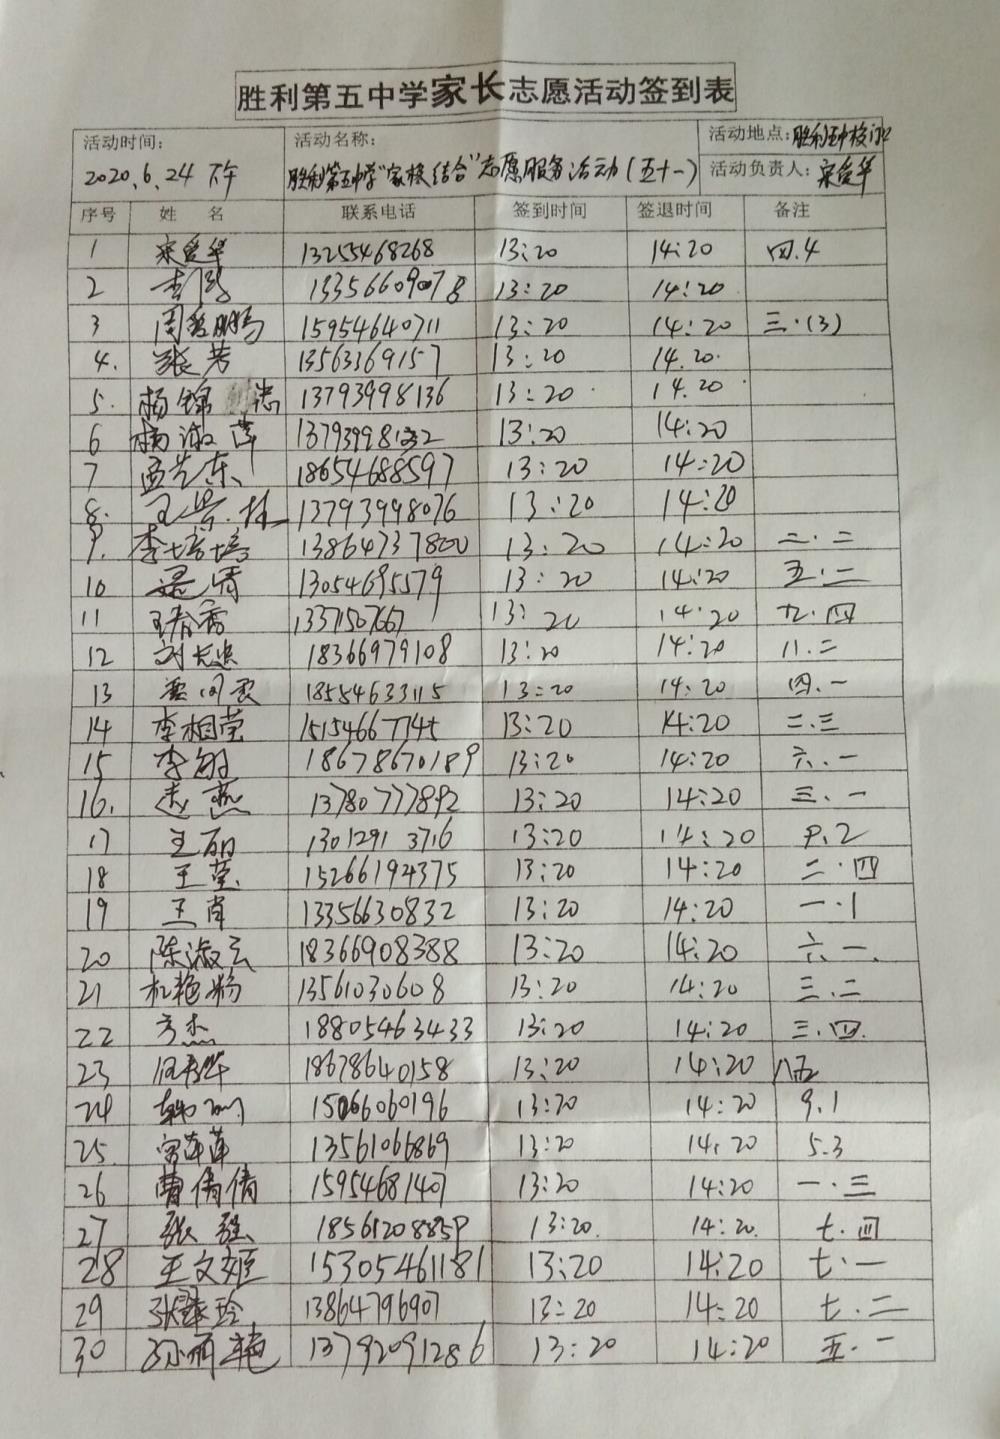 胜利第五中学家长志愿活动签到表
活动时间: 活动名称: 活动地点:胜利五中校门口
2020.6.24 下午 胜利第五中学“家校结合”志愿服务活动(五十一) 活动负责人:宋爱华
序号 姓 名 联系电话 签到时间 签退时间 备注
1 宋爱华 13255468268 13:20 14:20 四.4
2 13356609078 13:20 14:20
3 15954640711 13:20 14:20 三.(3)
4. 张芳 13563369157 13:20 14.20.
5. 杨锦忠 13793998136 13:20 14.20
6 杨淑萍 13:20 14:20
7 孟芝东 18654688597 13:20 14:20
8. 13793998076 13:20 14:20
9. 李培培 13864737800 13:20 14:20 二.二
10 梁倩 13054695579 13:20 14:20 五.二
11 王春香 13:20 14:20 九.四
12 18366979108 13:20 14:20 八.二
13 18554633115 13:20 14:20 四.一
14 李相莹 15154667145 13:20 14:20 二.三
15 李翔 18678670189 13:20 14:20 六.一
16. 燕 13780777892 13:20 14:20 三.一
17 王丽 13012913716 13:20 14:20 9.2
18 王莹 15266194375 13:20 14:20 二.四
19 王肖 13356630832 13:20 14:20 一.1
20 陈淑云 18366908388 13:20 14:20 六.一
21 杜艳粉 13561030608 13:20 14:20 三.二
22 方杰 18805463433 13:20 14:20 三.四.
23 18678640158 13:20 14:20
24 韩 15066060196 13:20 14:20 9.1
25. 宋萍萍 13561066869 13:20 14:20 5.3
26 曹倩倩 15954681407 13:20 14:20 一.三
27 张强 18561208859 13:20. 14:20. 七.四
28 王文姬 15305461181 13:20 14:20 七.一
29 张翠玲 13864796907 13:20 14:20 七.二
30 孙丽艳 13792091286 13:20 14:20 五.一